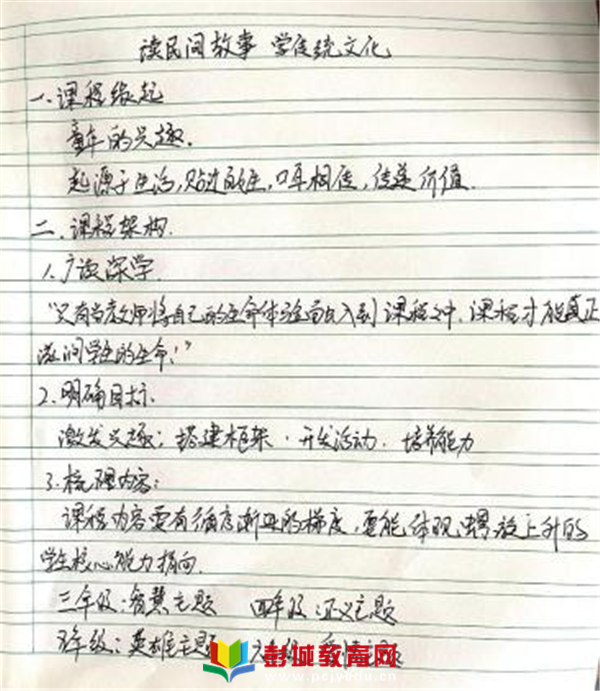 读民间故事 学传统文化
一、课程缘起
童年的兴趣.
起源于生活,贴近百姓,口耳相传,传递价值.
二、课程架构.
1.广读深学.
"只有当教师将自己的生命体验融入到课程之中,课程才能真正
滋润学生的生命!"
2.明确目标.
激发兴趣;搭建框架.开发活动.培养能力
3.梳理内容:
课程内容要有循序渐进的梯度,要能体现螺旋上升的
学生核心能力指向.
三年级:智慧主题 四年级:正义主题
五年级:英雄主题
彭城教育网
www.pcjyedu.cn